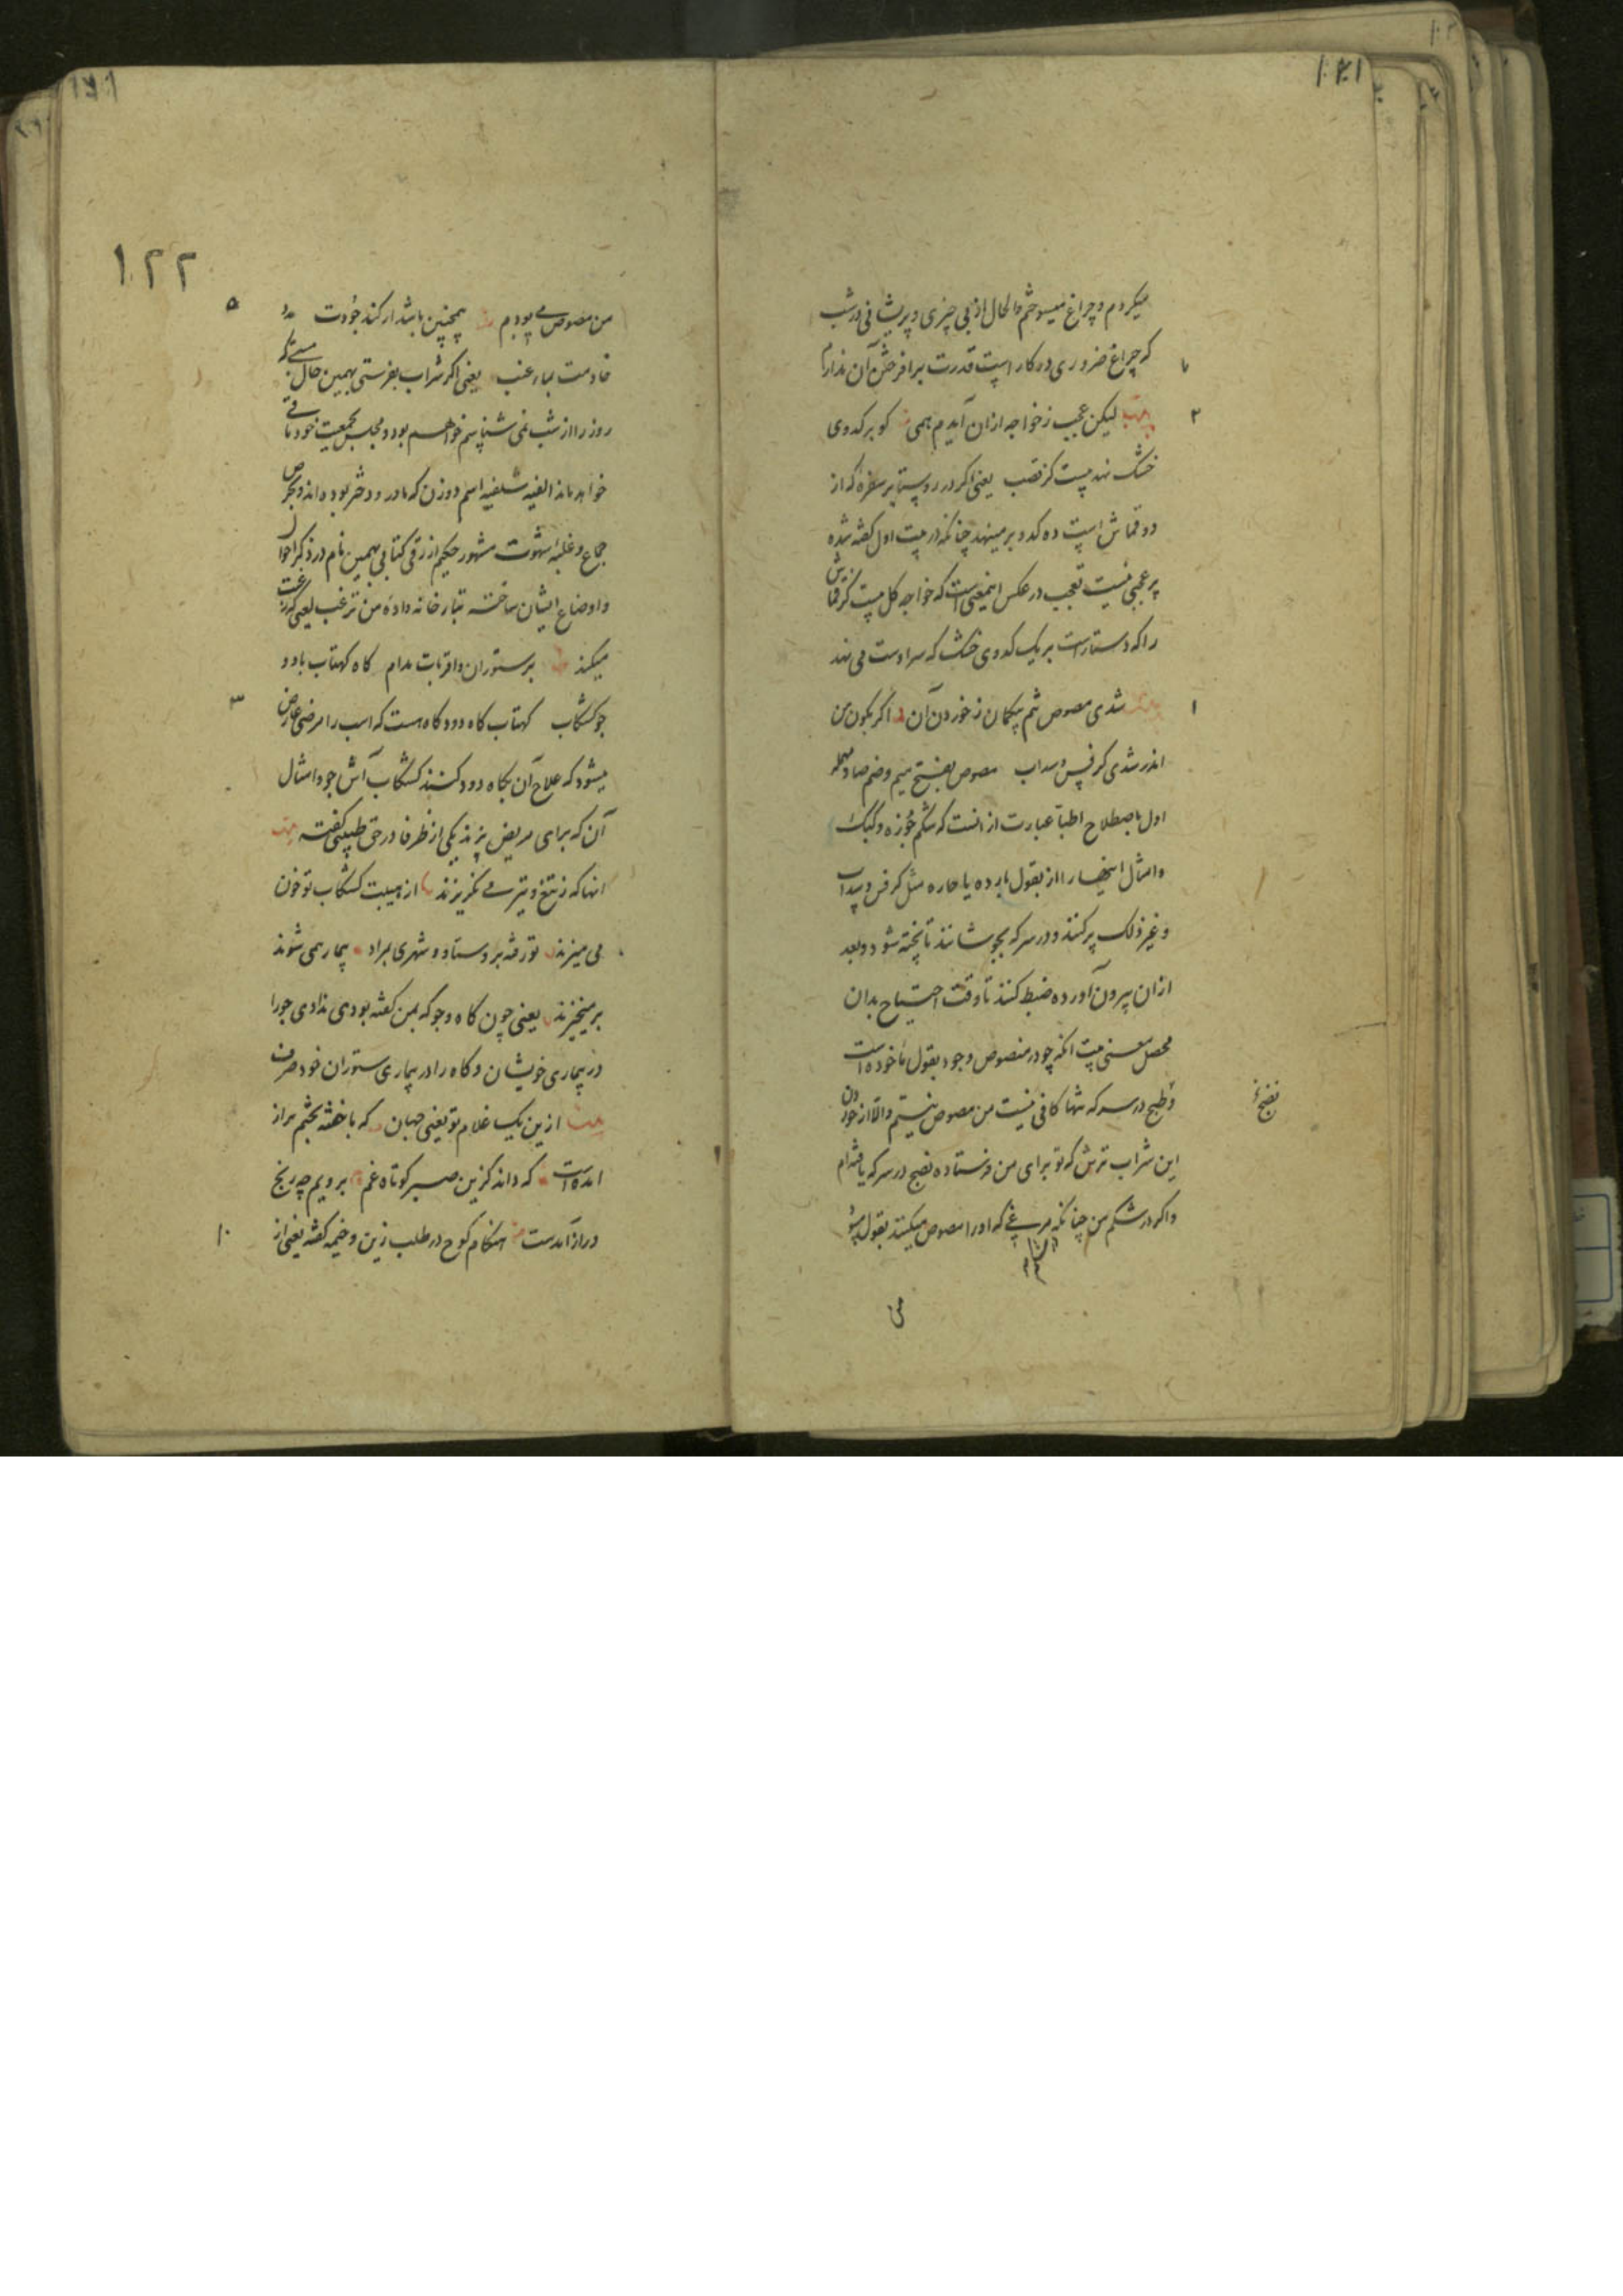 ۱۲۱
میکردم و چراغ میسوختم والحال از بی چیزی و پریشانی در شب
که چراغ ضروری در کار است قدرت بر افروختن آن ندارم
بیت لیکن عجب ز خواجه ازان آیدم همی کو بر کدوی
خشک نهد بیست کز قصب یعنی اگر در روستا بر سفره که از
دو قماش است ده کدو بر مینهد چنانکه در بیت اول گفته شده
پر عجبی نیست تعجب در عکس اینمعنی است که خواجه کل بیست کز قماش
را که دستار است بر یک کدوی خشک که سر اوست می نهد
بیت شدی مصوص شم بیکمان ز خوردن آن اگر بکون من
اندر شدی کرفس و سداب مصوص بفتح میم و ضم صاد مهمله
اول باصطلاح اطبا عبارت از انست که شکم جوزه و کبک
و امثال اینها را از بقول بارده یا حاره مثل کرفس و سداب
و غیر ذلک پر کنند و در سرکه بجوشانند تا پخته شود و بعد
ازان بیرون آورده ضبط کنند تا وقت احتیاج بدان
محصل معنی بیت انکه چو در مصوص وجود بقول ماخوذ است
و طبخ در سرکه تنها کافی نیست من مصوص نیستم و الا از خوردن
این شراب ترش که تو برای من فرستاده نضج در سرکه یافته ام
و اگر در شکم من چنانکه مرغی که او را مصوص میکنند بقول
نضج
۱۲۲
من مصوص می بودم همچنین باشد ار کند جودت
خادمت بماء عنب یعنی اگر شراب بفرستی بهمین حال
روز را از شب نمی شناسم خواهم بود و مجلس جمعیت خود باقی
خواهد ماند الفیه شلفیه اسم دو زن که مادر و دختر بوده اند و بحرص
جماع و غلبه شهوت مشهور حکیم ازرقی کتابی بهمین نام در ذکر احوال
و اوضاع ایشان ساخته تبار خانه داده من ترغب لعبی که رغبت
میکند بر ستوران و اقربات مدام کاه کهتاب باد و
جو کشکاب کهتاب کاه دود کاه هست که اسب را مرضی عارض
میشود که علاج آن بکاه دود کنند کشکاب آش جو و امثال
آن که برای مریض پزند یکی از ظرفا در حق طبیبی گفته بیت
انها که ز تیغ و تیر می نگریزند از هیبت کشکاب تو خون
می میزند تو رفته بروستا و شهری بمراد بیمار همی شوند
بر میخیزند یعنی چون کاه و جو که بمن گفته بودی ندادی جو را
در بیماری خویشان و کاه را در بیماری ستوران خود صرف
بیت ازین یک غلام تو یعنی جهان که با خفته بختم براز
امده است که داند کزین صبر کوتاه غم برویم چه رنج
دراز آمدست هنکام کوچ در طلب زین و خیمه گفته یعنی از